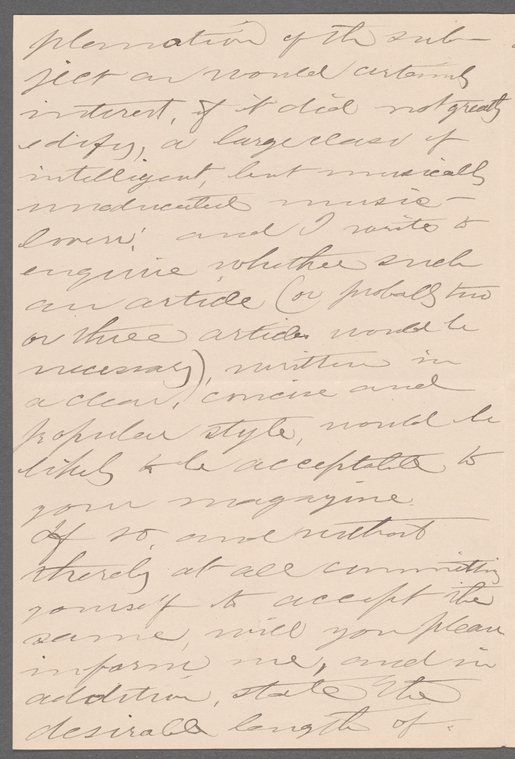 planation of the sub-
ject as would certainly
interest, if it did not greatly
edify, a large class of
intelligent, but musically
uneducated music-
lovers; and I write to
enquire whether such
an article (or probably two
or three articles would be
necessary), written in
a clear, concise and
popular style, would be
likely to be acceptable to
your magazine.
If so, and without
thereby at all committing
yourself to accept the
same, will you please
inform me, and in
addition, state the
desirable length of